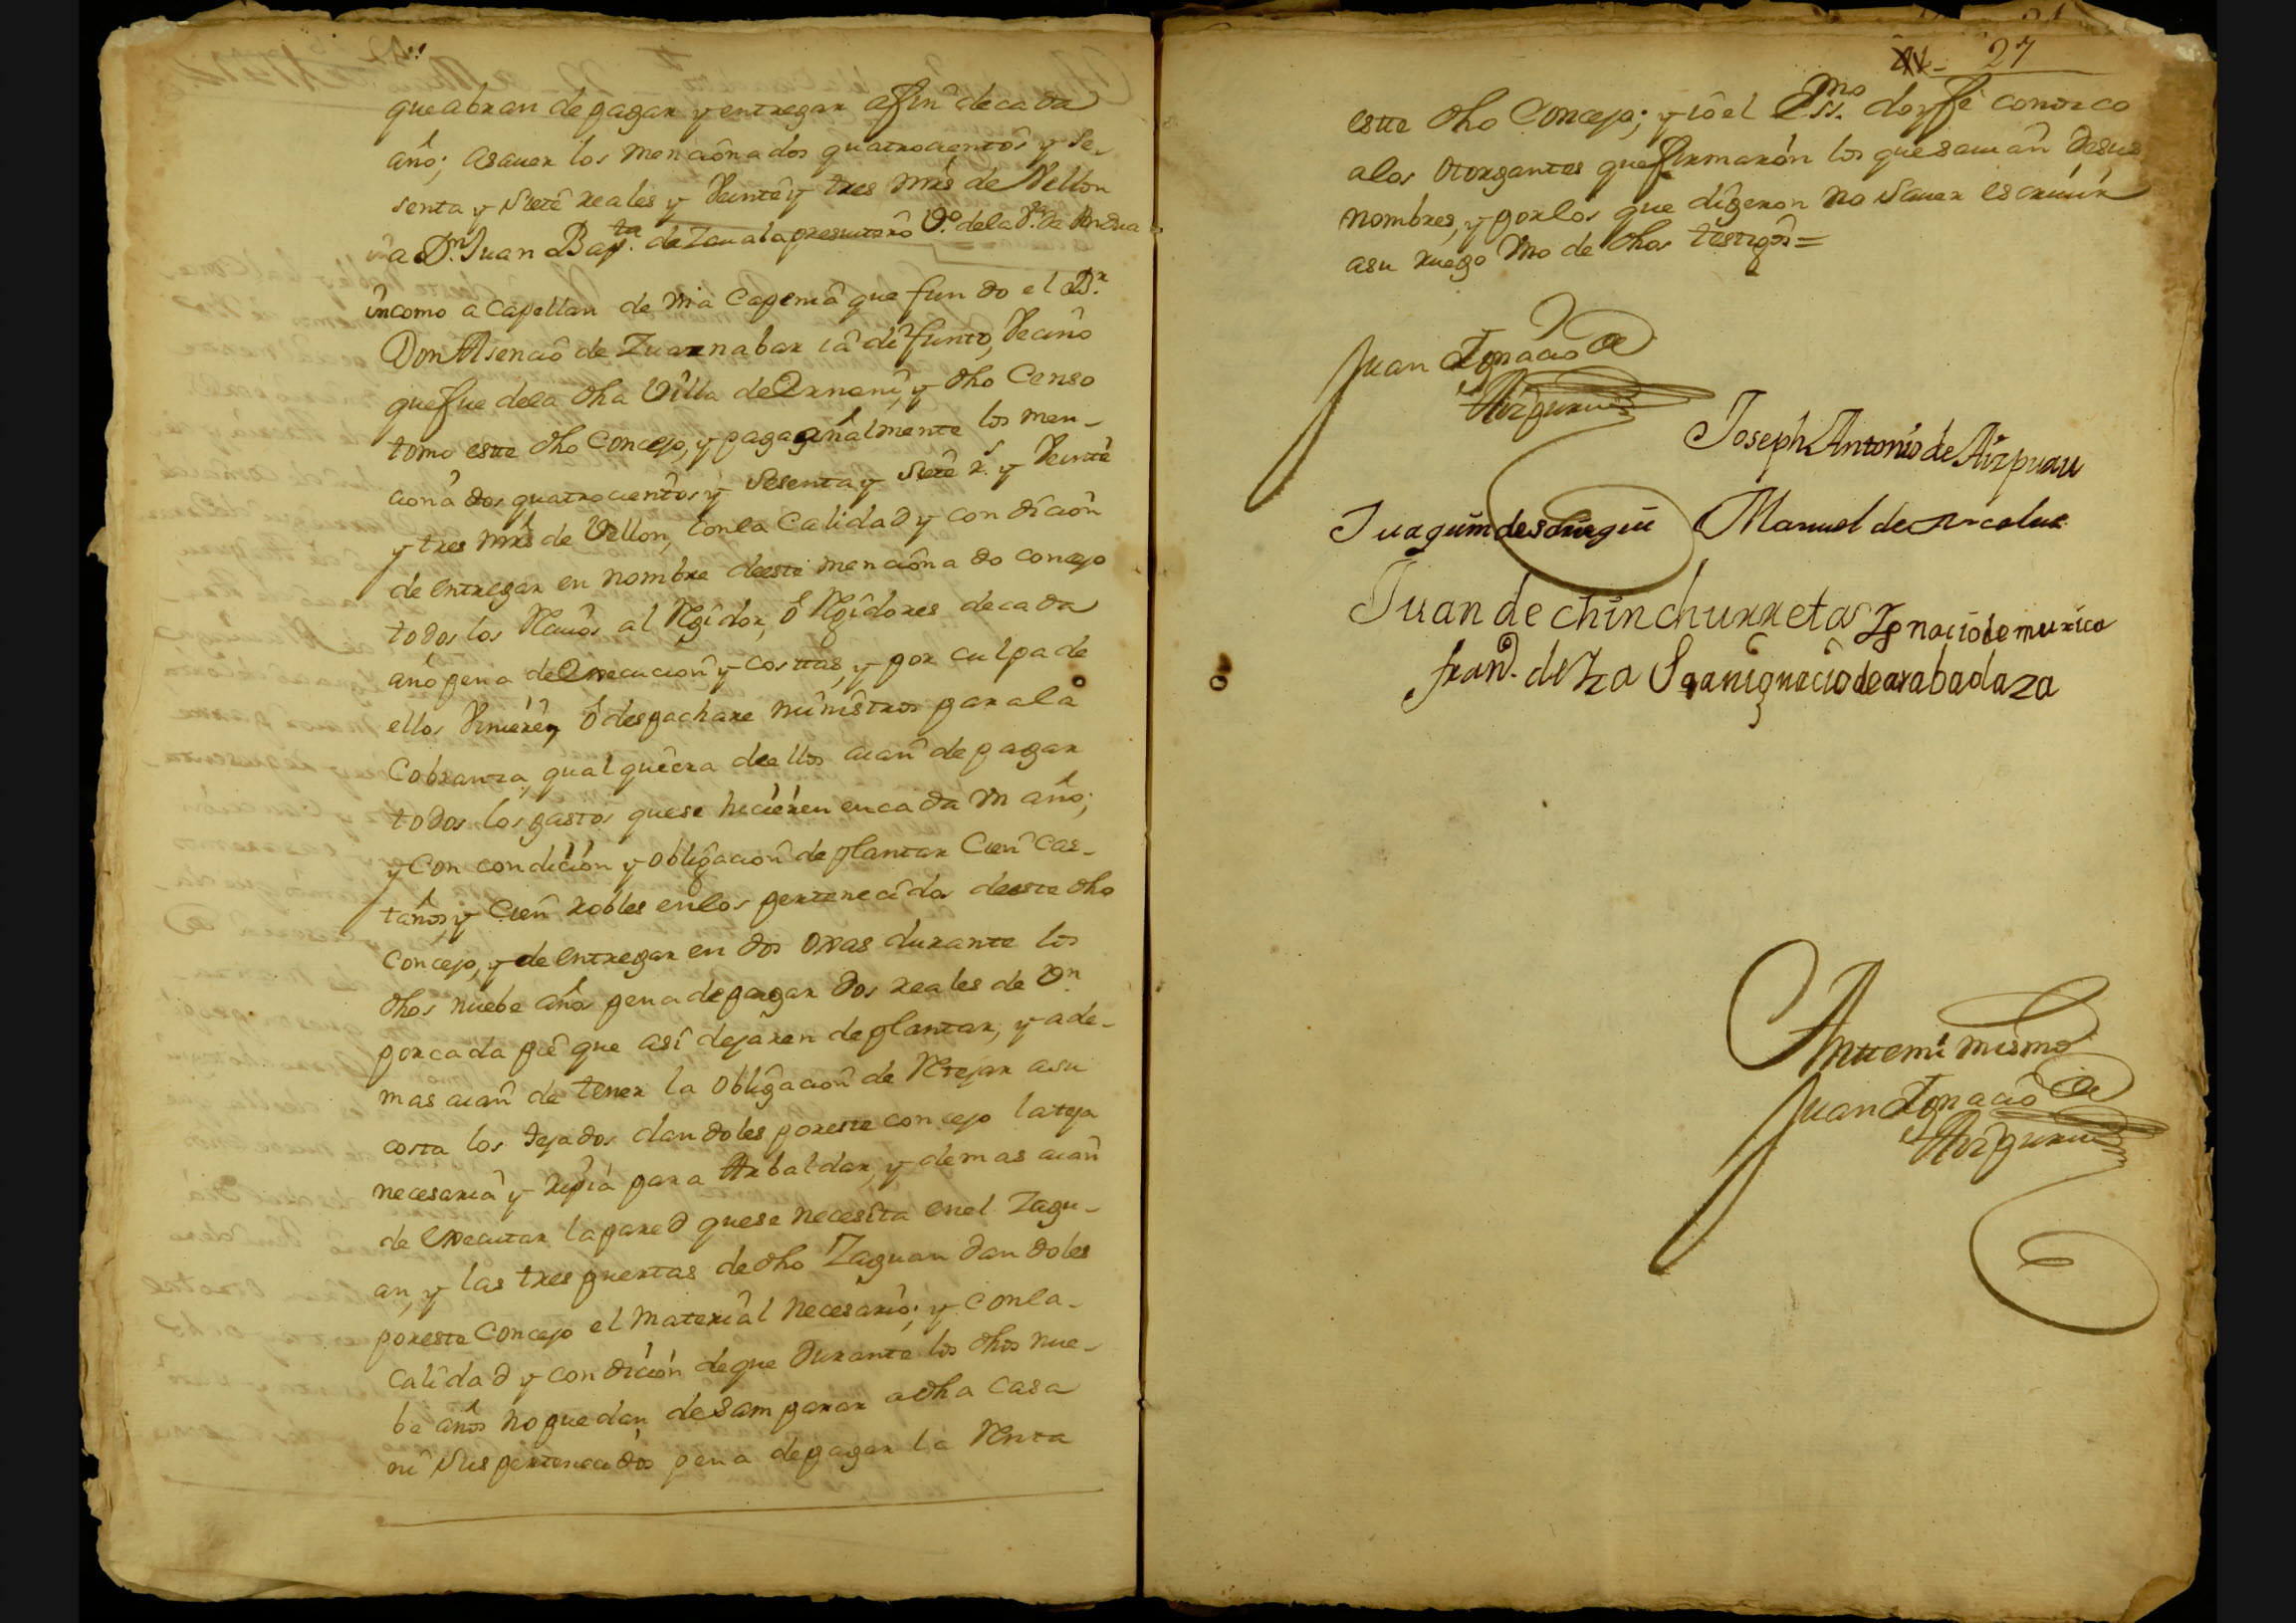 que abran de pagar y entregar a fin de cada
año; asauer los mencionados quatrocientos y se-
senta y siete reales y Veinte y tres mrs de Vellon
a Dn. Juan Bapta. de Zauala presuitero Vo. de la Va. de Andua
in como a Capellan de Vna Capenia que fundo el Br.
Don Asencio de Zuaznabar ia difunto, Vecino
que fue de la dha Villa de Ernani, y dho Censo
tomo este dho Concejo, y paga añalmente los men-
cionados quatrocientos y sesenta y siete rs. y Veinte
y tres mrs de Vellon, con la Calidad y condicion
de entregar en nombre de este mencionado concejo
todos los Reciuos al Regidor, ó Regidores de cada
año pena de Execucion y costtas, y por culpa de
ellos Viniéren, ó despachare ministros para la
Cobranza, qualquiera de ellos aian de pagar
todos los gastos que se hiciéren en cada Vn año;
y Con condición y obligacion de plantar Cien Cas-
taños, y Cien robles en los pertenecidos de este dho
Concejo, y de entregar en dos oxas durante los
dhos nuebe años pena de pagar dos reales de Vn.
por cada pie que asi dejaren de plantar, y ade-
mas aian de tener la obligacion de Retejar a su
costa los tejados dandoles por este concejo la teja
necesaria y ripia para Arbaldar, y demas aian
de Executar la pared que se necesita en el Zagu-
an, y las tres puertas de dho Zaguan dandoles
por este Concejo el material necesario; y Con la-
Calidad y condición de que durante los dhos nue-
be años no puedan desamparar a dha Casa
ni sus pertenecidos pena de pagar la Renta
27
este dho Concejo; y io el Essno. doy fe conozco
a los otorgantes que firmarón los que sauian de sus
nombres, y por los que digeron no sauer escriuir
a su ruego Vno de dhos testigos =
Juan Ignacio de
Aizpurua
Joseph Antonio de Aizpuru
Juaquim de
Manuel de
Juan de chinchurreta Ignacio de muxica
frand. de Iza Juan ignacio de arabaolaza
Antte mi mismo
Juan Ignacio de
Aizpurua